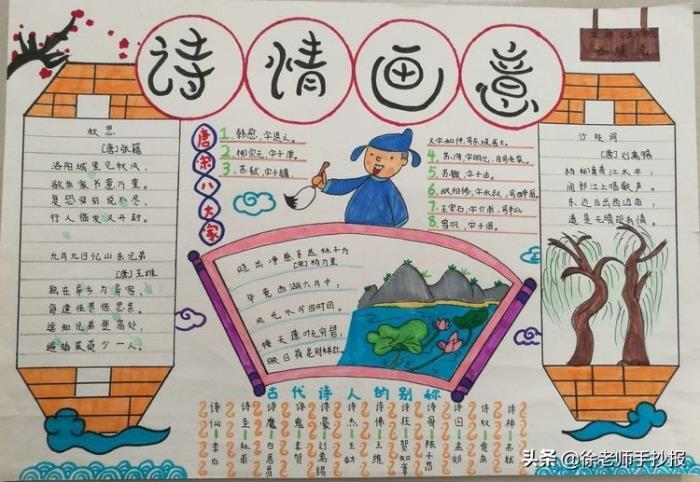 诗情画意
秋思
[唐]张籍
洛阳城里见秋风，
欲作家书意万重。
复恐匆匆说不尽，
行人临发又开封。
九月九日忆山东兄弟
[唐]王维
独在异乡为异客，
每逢佳节倍思亲。
遥知兄弟登高处，
遍插茱萸少一人。
唐宋八大家
1、韩愈，字退之。
2、柳宗元，字子厚。
3、苏轼，字子瞻，
又字和仲，号东坡居士。
4、苏洵，字明允，自号老泉。
5、苏辙，字子由。
6、欧阳修，字永叔，号醉翁。
7、王安石，字介甫，号半山。
8、曾巩，字子固。
竹枝词
[唐]刘禹锡
杨柳青青江水平，
闻郎江上唱歌声。
东边日出西边雨，
道是无晴却有晴。
晓出净慈寺送林子方
[宋]杨万里
毕竟西湖六月中，
风光不与四时同。
接天莲叶无穷碧，
映日荷花别样红。
古代诗人的别称
诗仙—李白
诗圣—杜甫
诗魔—白居易
诗鬼—李贺
诗豪—刘禹锡
诗杰—王勃
诗佛—王维
诗狂—贺知章
诗骨—陈子昂
诗囚—孟郊
诗奴—贾岛
诗神—苏轼
头条 @徐老师手抄报